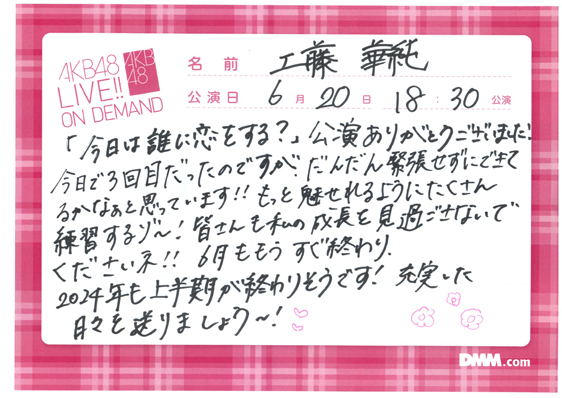 AKB48
LIVE!!
ON DEMAND
AKB
48
名 前 工藤 華純
公演日 6 月 20 日 18 : 30 公演
「今日は誰に恋をする?」公演ありがとうございました!
今日で3回目だったのですが、だんだん緊張せずにできて
るかなぁと思っています!! もっと魅せれるようにたくさん
練習するゾ〜! 皆さんも私の成長を見過ごさないで
くださいネ!! 6月ももうすぐ終わり、
2024年も上半期が終わりそうです! 充実した
日々を送りましょう〜!
DMM.com